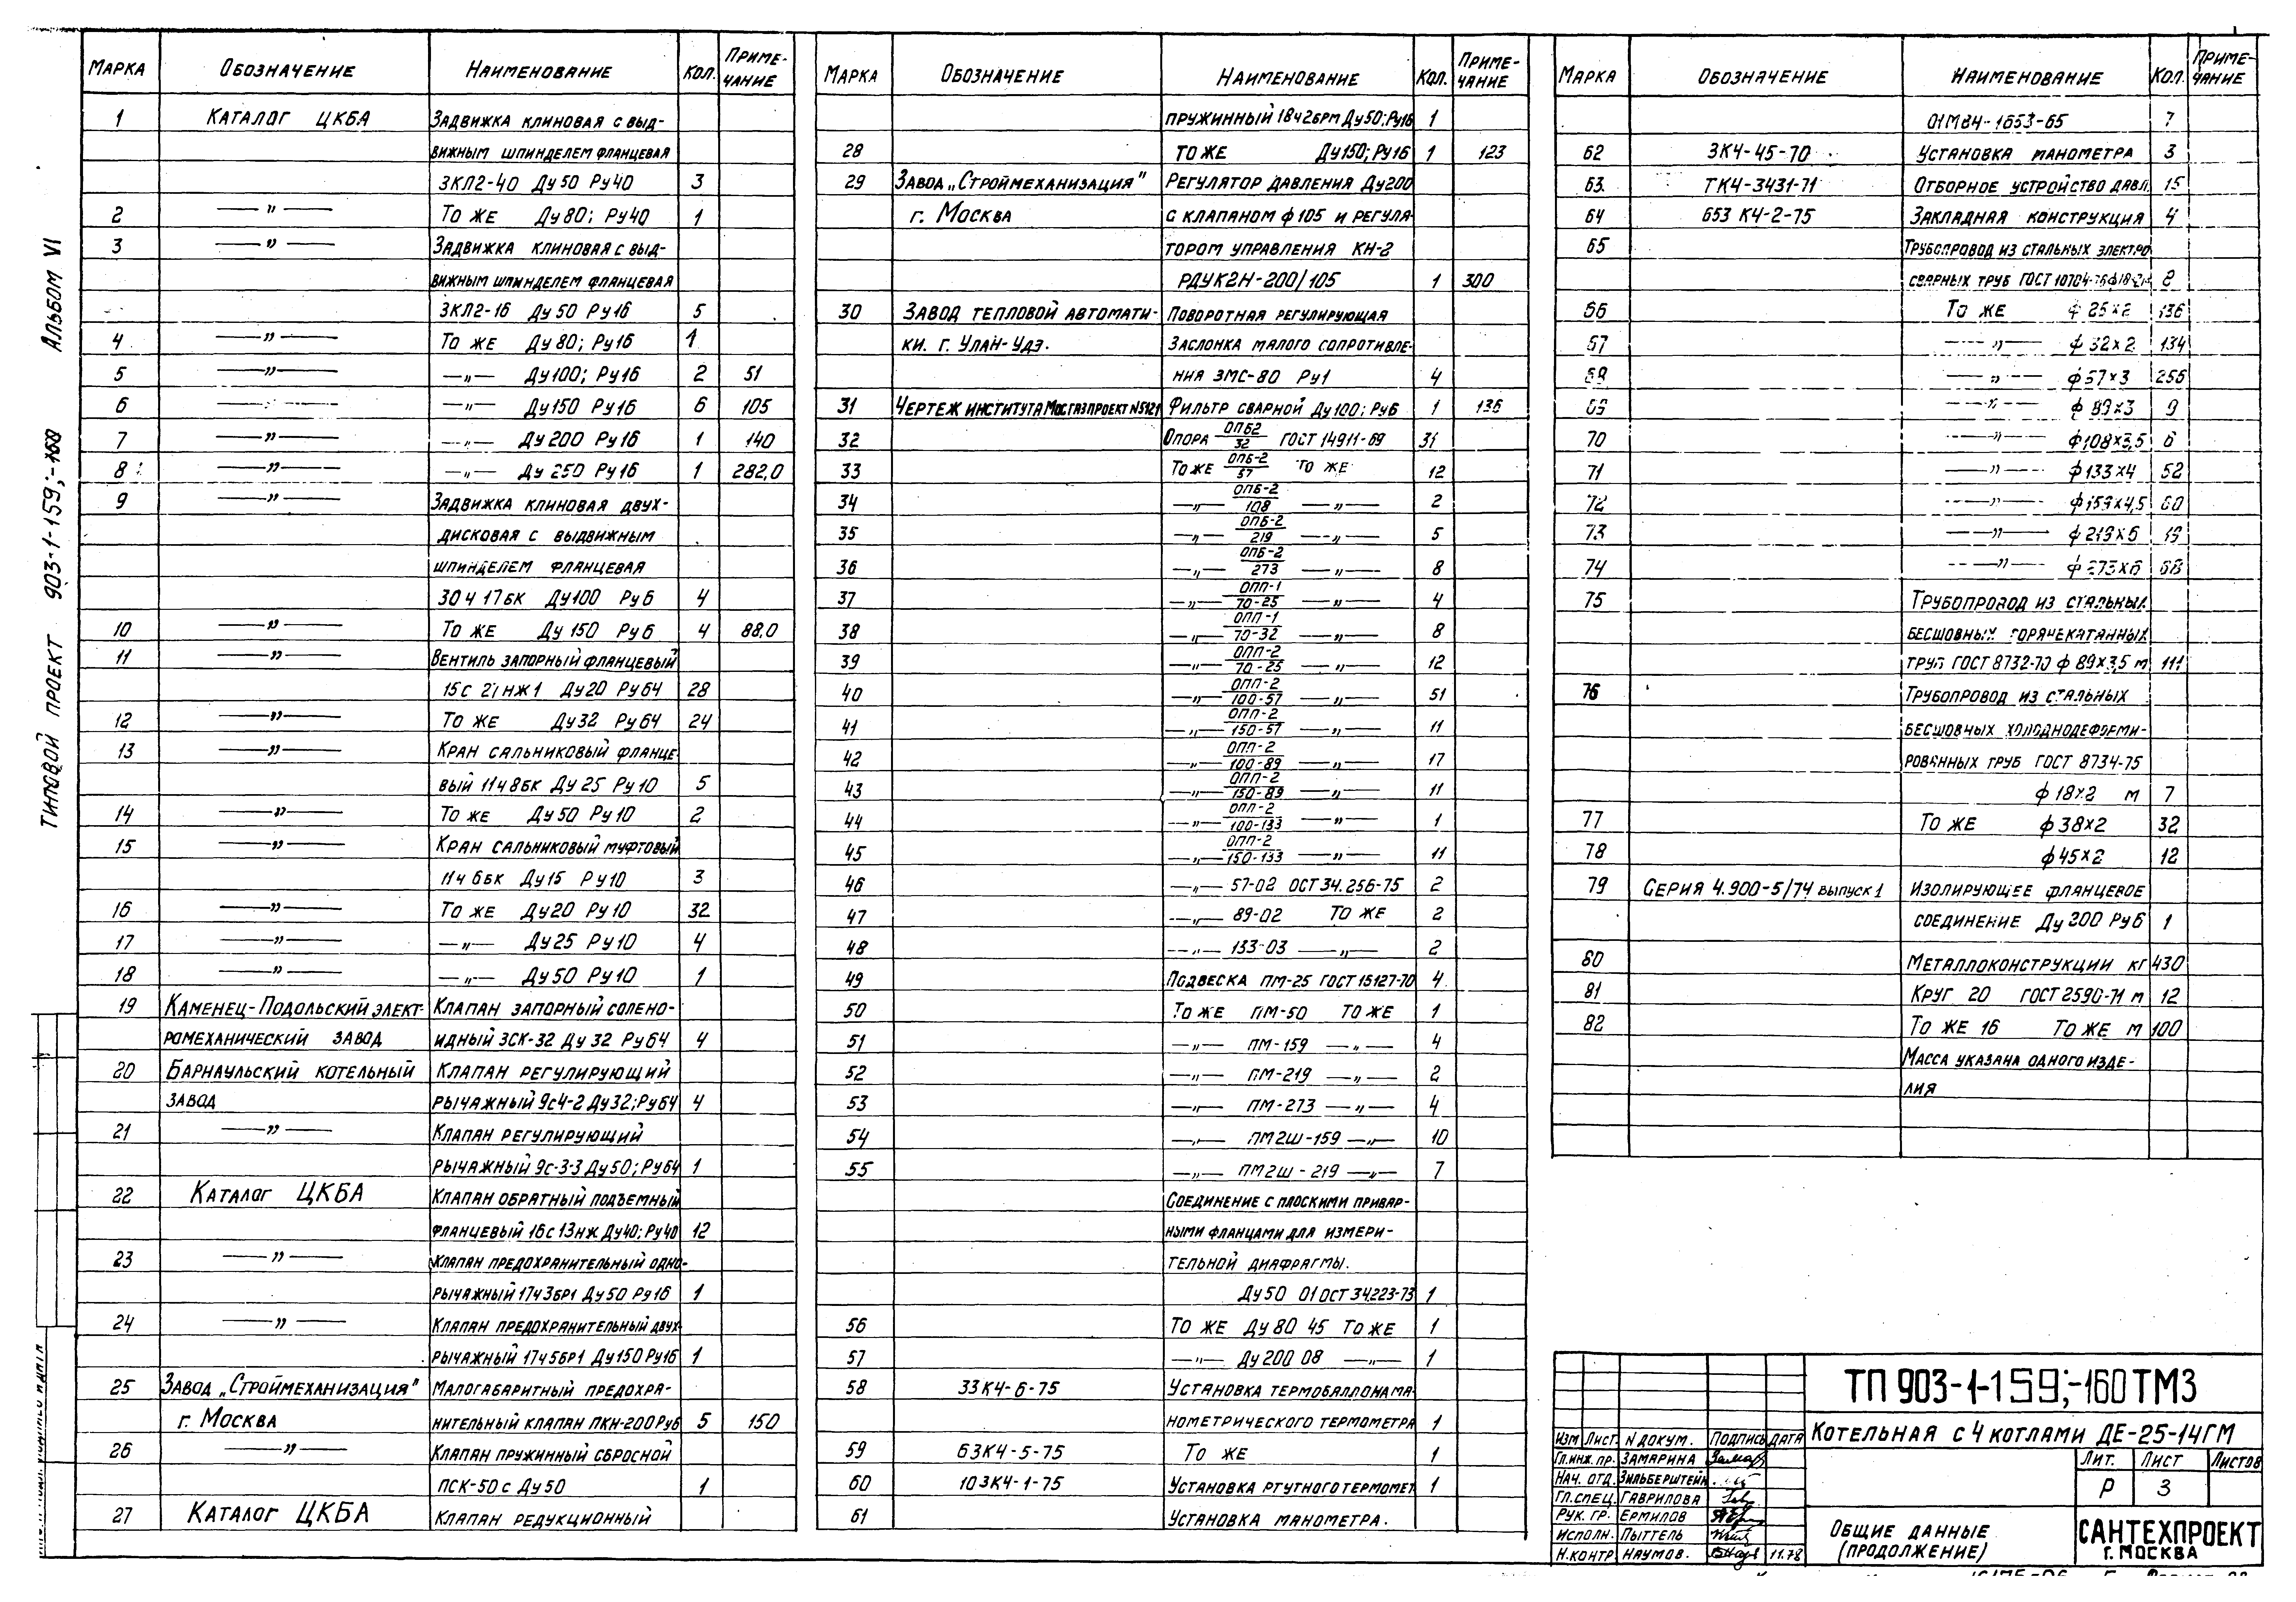 Альбом VI
Типовой проект 903-1-159;-160
Марка Обозначение Наименование Кол. Примечание
1 Каталог ЦКБА Задвижка клиновая с выд-
вижным шпинделем фланцевая
ЗКЛ2-40 Ду 50 Ру 40 3
2 —"— То же Ду 80; Ру 40 1
3 —"— Задвижка клиновая с выд-
вижным шпинделем фланцевая
ЗКЛ2-16 Ду 50 Ру 16 5
4 —"— То же Ду 80; Ру 16 1
5 —"— —"— Ду 100; Ру 16 2 51
6 —"— —"— Ду 150 Ру 16 6 105
7 —"— —"— Ду 200 Ру 16 1 140
8 —"— —"— Ду 250 Ру 16 1 282,0
9 —"— Задвижка клиновая двух-
дисковая с выдвижным
шпинделем фланцевая
30ч 17бк Ду 100 Ру 6 4
10 —"— То же Ду 150 Ру 6 4 88,0
11 —"— Вентиль запорный фланцевый
15с 27нж1 Ду 20 Ру 64 28
12 —"— То же Ду 32 Ру 64 24
13 —"— Кран сальниковый фланце-
вый 11ч 8бк Ду 25 Ру 10 5
14 —"— То же Ду 50 Ру 10 2
15 —"— Кран сальниковый муфтовый
11ч 6бк Ду 15 Ру 10 3
16 —"— То же Ду 20 Ру 10 32
17 —"— —"— Ду 25 Ру 10 4
18 —"— —"— Ду 50 Ру 10 1
19 Каменец-Подольский элект- Клапан запорный солено-
ромеханический завод идный ЗСК-32 Ду 32 Ру 64 4
20 Барнаульский котельный Клапан регулирующий
завод рычажный 9с4-2 Ду 32; Ру 64 4
21 —"— Клапан регулирующий
рычажный 9с-3-3 Ду 50; Ру 64 1
22 Каталог ЦКБА Клапан обратный подъемный
фланцевый 16с 13нж Ду 40; Ру 40 12
23 —"— Клапан предохранительный одно-
рычажный 17ч 3бр1 Ду 50 Ру 16 1
24 —"— Клапан предохранительный двух-
рычажный 17ч 5бр1 Ду 150 Ру 16 1
25 Завод „Строймеханизация" Малогабаритный предохра-
г. Москва нительный клапан ПКН-200 Ру 6 5 150
26 —"— Клапан пружинный сбросной
ПСК-50 с Ду 50 1
27 Каталог ЦКБА Клапан редукционный
Марка Обозначение Наименование Кол. Примечание
пружинный 18ч2брм Ду 50; Ру 16 1
28 То же Ду 150; Ру 16 1 123
29 Завод „Строймеханизация" Регулятор давления Ду 200
г. Москва с клапаном ф 105 и регуля-
тором управления КН-2
РДУК2Н-200/105 1 300
30 Завод тепловой автомати- Поворотная регулирующая
ки. г. Улан-Удэ. заслонка малого сопротивле-
ния ЗМС-80 Ру 1 4
31 Чертеж института Мосгазпроект N5121 Фильтр сварной Ду 100; Ру 6 1 136
32 Опора ОПБ2/32 ГОСТ 14911-69 31
33 То же ОПБ-2/57 То же 12
34 —"— ОПБ-2/108 —"— 2
35 —"— ОПБ-2/219 —"— 5
36 —"— ОПБ-2/273 —"— 8
37 —"— ОПП-1/70-25 —"— 4
38 —"— ОПП-1/70-32 —"— 8
39 —"— ОПП-2/70-25 —"— 12
40 —"— ОПП-2/100-57 —"— 51
41 —"— ОПП-2/150-57 —"— 11
42 —"— ОПП-2/100-89 —"— 17
43 —"— ОПП-2/150-89 —"— 11
44 —"— ОПП-2/100-133 —"— 1
45 —"— ОПП-2/150-133 —"— 11
46 —"— 57-02 ОСТ 34.256-75 2
47 —"— 89-02 То же 2
48 —"— 133-03 —"— 2
49 Подвеска ПМ-25 ГОСТ 15127-70 4
50 То же ПМ-50 То же 1
51 —"— ПМ-159 —"— 4
52 —"— ПМ-219 —"— 2
53 —"— ПМ-273 —"— 4
54 —"— ПМ2Ш-159 —"— 10
55 —"— ПМ2Ш-219 —"— 7
Соединение с плоскими привар-
ными фланцами для измери-
тельной диафрагмы.
Ду 50 01 ОСТ 34.223-73 1
56 То же Ду 80 45 То же 1
57 —"— Ду 200 08 —"— 1
58 33К4-6-75 Установка термобаллона ма-
нометрического термометра 1
59 63К4-5-75 То же 1
60 103К4-1-75 Установка ртутного термомет. 1
61 Установка манометра.
Марка Обозначение Наименование Кол. Примечание
01МВ4-1653-65 7
62 ЗК4-45-70 Установка манометра 3
63 ТК4-3431-71 Отборное устройство давл. 15
64 653 К4-2-75 Закладная конструкция 4
65 Трубопровод из стальных электро
сварных труб ГОСТ 10704-76 ф18-2м 2
66 То же ф 25×2 136
67 —"— ф 32×2 134
68 —"— ф 57×3 256
69 —"— ф 89×3 9
70 —"— ф108×3,5 6
71 —"— ф 133×4 52
72 —"— ф159×4,5 60
73 —"— ф 219×6 19
74 —"— ф 273×6 68
75 Трубопровод из стальных
бесшовных горячекатанных
труб ГОСТ 8732-70 ф 89×3,5 м 111
76 Трубопровод из стальных
бесшовных холоднодеформи-
рованных труб ГОСТ 8734-75
ф 18×2 м 7
77 То же ф 38×2 32
78 ф 45×2 12
79 Серия 4.900-5/74 выпуск 1 Изолирующее фланцевое
соединение Ду 300 Ру 6 1
80 Металлоконструкции кг 430
81 Круг 20 ГОСТ 2590-71 м 12
82 То же 16 То же м 100
Масса указана одного изде-
лия
ТП 903-1-159;-160 ТМ3
Котельная с 4 котлами ДЕ-25-14ГМ
Изм Лист N докум. Подпись Дата
Гл. инж. пр. Замарина
Нач. отд. Зильберштейн
Гл. спец. Гаврилова
Рук. гр. Ермилов
Исполн. Пыттель
Н. контр Наумов. 11.78
Лит. Лист Листов
Р 3
Общие данные
(продолжение)
САНТЕХПРОЕКТ
г. Москва